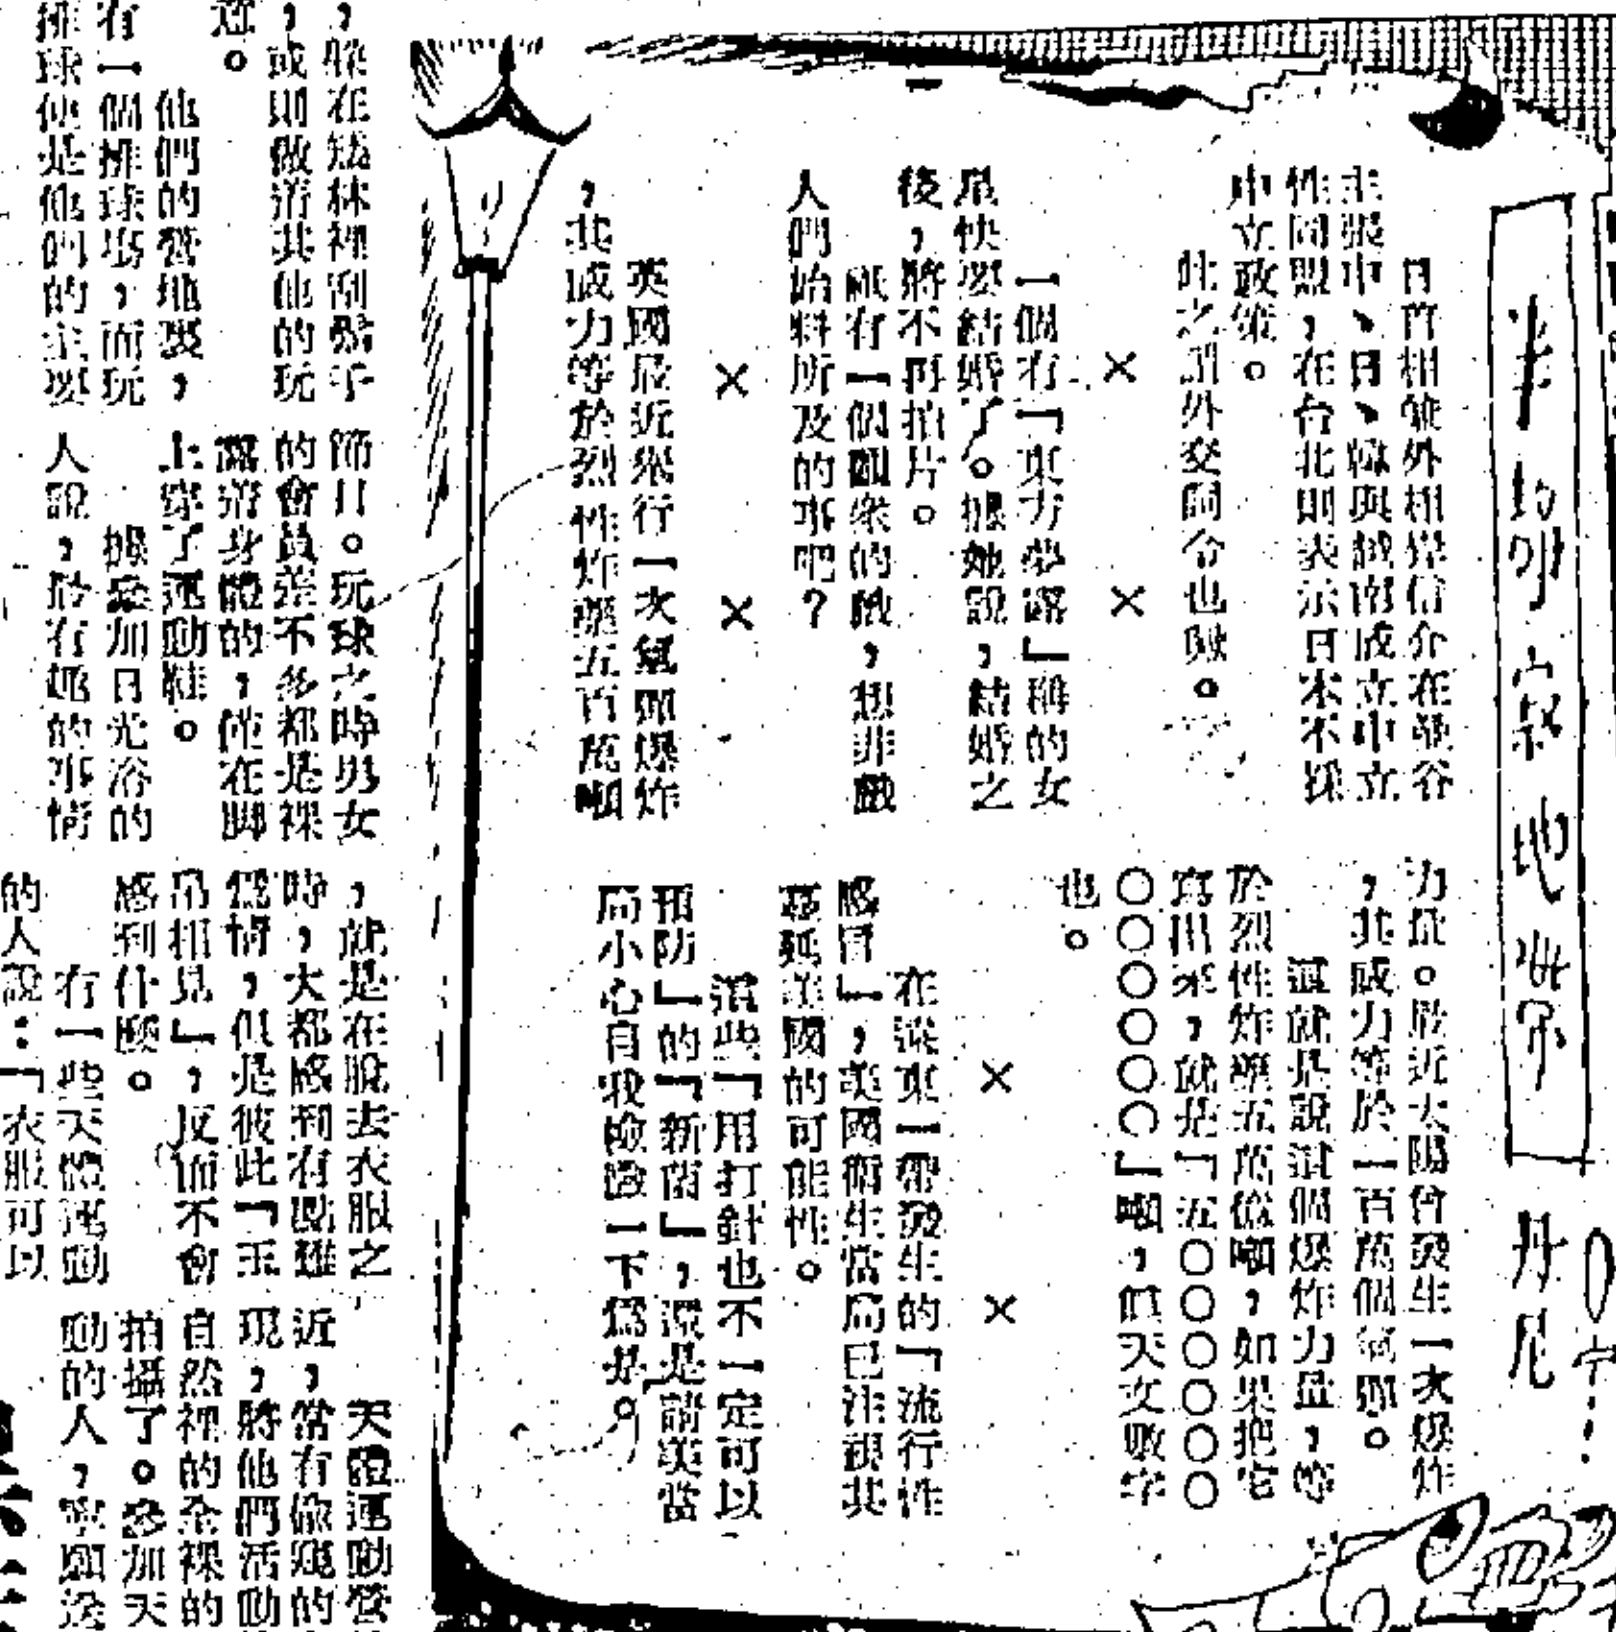 丹尼
日首相兼外相岸信介在曼谷
主張中、日、韓與越南成立中立
性同盟,在台北則表示日本不採
中立政策。
此之謂外交詞令也歟。
×
×
一個有「東方夢露」稱的女
星快要結婚了。據她說,結婚之
後,將不再拍片。
祇有一個觀衆的戲,想非戲
人們始料所及的事吧?
×
×
英國最近舉行一次氫彈爆炸
,其威力等於烈性炸藥五百萬噸
力量。最近太陽曾發生一次爆炸
,其威力等於一百萬個氫彈。
這就是說這個爆炸力量,等
於烈性炸藥五萬億噸,如果把它
寫出來,就是「五〇〇〇〇〇〇
〇〇〇〇〇〇」噸,眞天文數字
也。
×
×
在遠東一帶發生的「流行性
感冒」,美國衞生當局已注視其
蔓延美國的可能性。
這些「用打針也不一定可以
預防」的「新菌」,還是請美當
局小心自我檢驗一下爲是。
,躲在森林裡刮鬍子
,或則做着其他的玩
意。
他們的營地裏,
有一個排球場,而玩
排球便是他們的主要
節目。玩球之時男女
的會員差不多都是裸
露着身體的,僅在脚
上穿了運動鞋。
據參加日光浴的
人說,最有趣的事情
,就是在脫去衣服之
時,大都感到有點難
爲情,但是彼此「玉
帛相見」,反而不會
感到什麼。
有一些天體運動
的人說:「衣服可以
天體運動營
近,當有偸窺的
現,將他們活動
自然裡的全裸的
拍攝了。參加天
動的人,寧願送